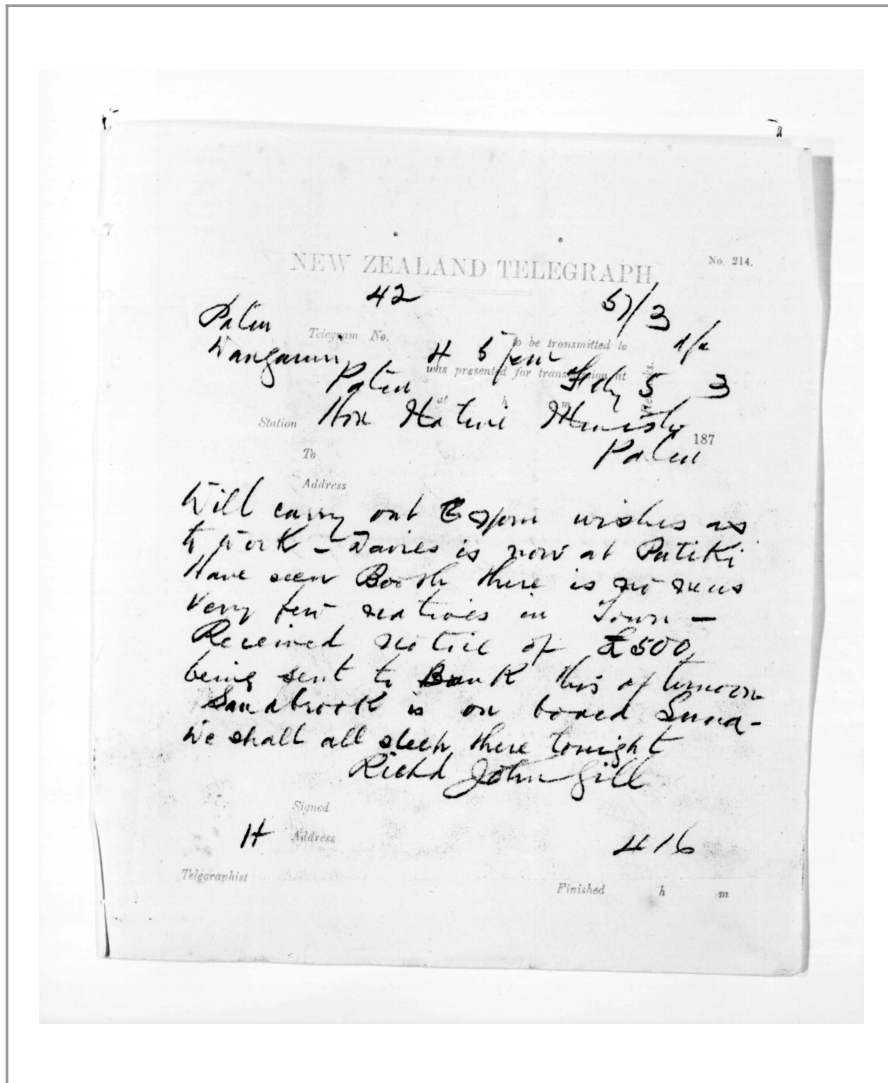 NEW ZEALAND TELEGRAPH
No. 214.
42 57/3
Patea
Telegram No. to be transmitted to
Wanganui 4 5 pm
was presented for transmission at
Patea Feby 5 3
at h m
Station Hon Native Minister
187
To Patea
Address
Will carry out your wishes as
to work - Davies is now at Putiki
Have seen Booth there is no news
Very few natives in Town -
Received notice of £500
being sent to Bank this afternoon
Sandbrook is on board Luna -
We shall all sleep there tonight
Richd John Gill
Signed
H Address 416
Telegraphist
Finished h m